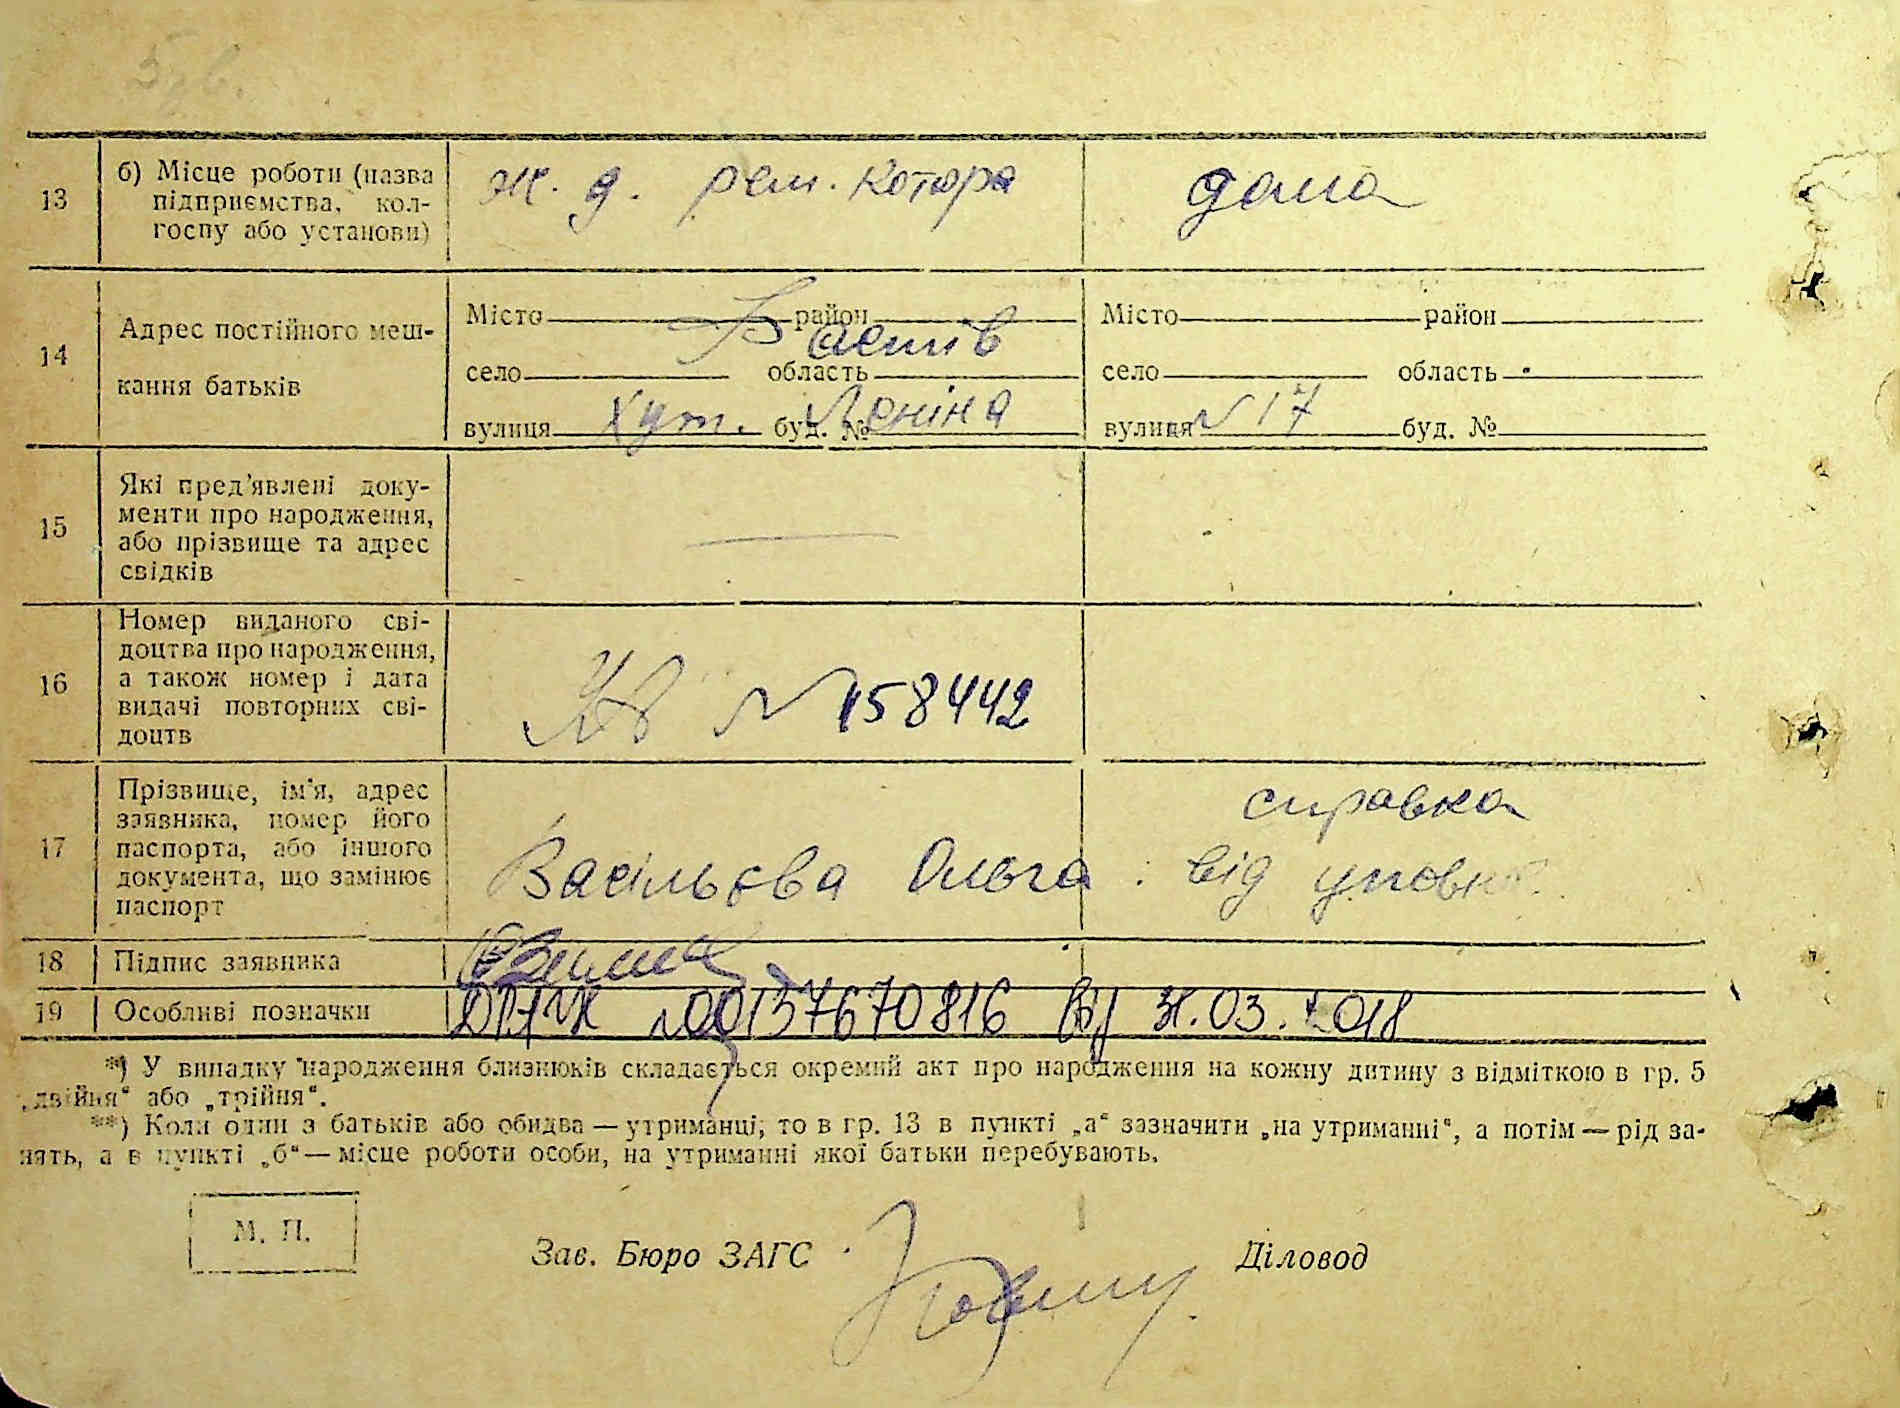 13
б) Місце роботи (назва
підприємства, кол-
госпу або установи)
ж. д. рем. контора
дома
14
Адрес постійного меш-
кання батьків
Місто район
Фастів
село область
вулиця хут. буд. № Леніна
Місто район
село область
вулиця N 17 буд. №
15
Які пред'явлені доку-
менти про народження,
або прізвище та адрес
свідків
16
Номер виданого сві-
доцтва про народження,
а також номер і дата
видачі повторних сві-
доцтв
N 158442
17
Прізвище, ім'я, адрес
заявника, номер його
паспорта, або іншого
документа, що замінює
паспорт
Васільєва Ольга
справка
від уповн.
18
Підпис заявника
19
Особливі позначки
N00137670816 від 31.03.2018
*) У випадку народження близнюків складається окремий акт про народження на кожну дитину з відміткою в гр. 5
„двійня“ або „трійня“.
**) Коли один з батьків або обидва — утриманці, то в гр. 13 в пункті „а“ зазначити „на утриманні“, а потім — рід за-
нять, а в пункті „б“ — місце роботи особи, на утриманні якої батьки перебувають.
М. П.
Зав. Бюро ЗАГС
Діловод